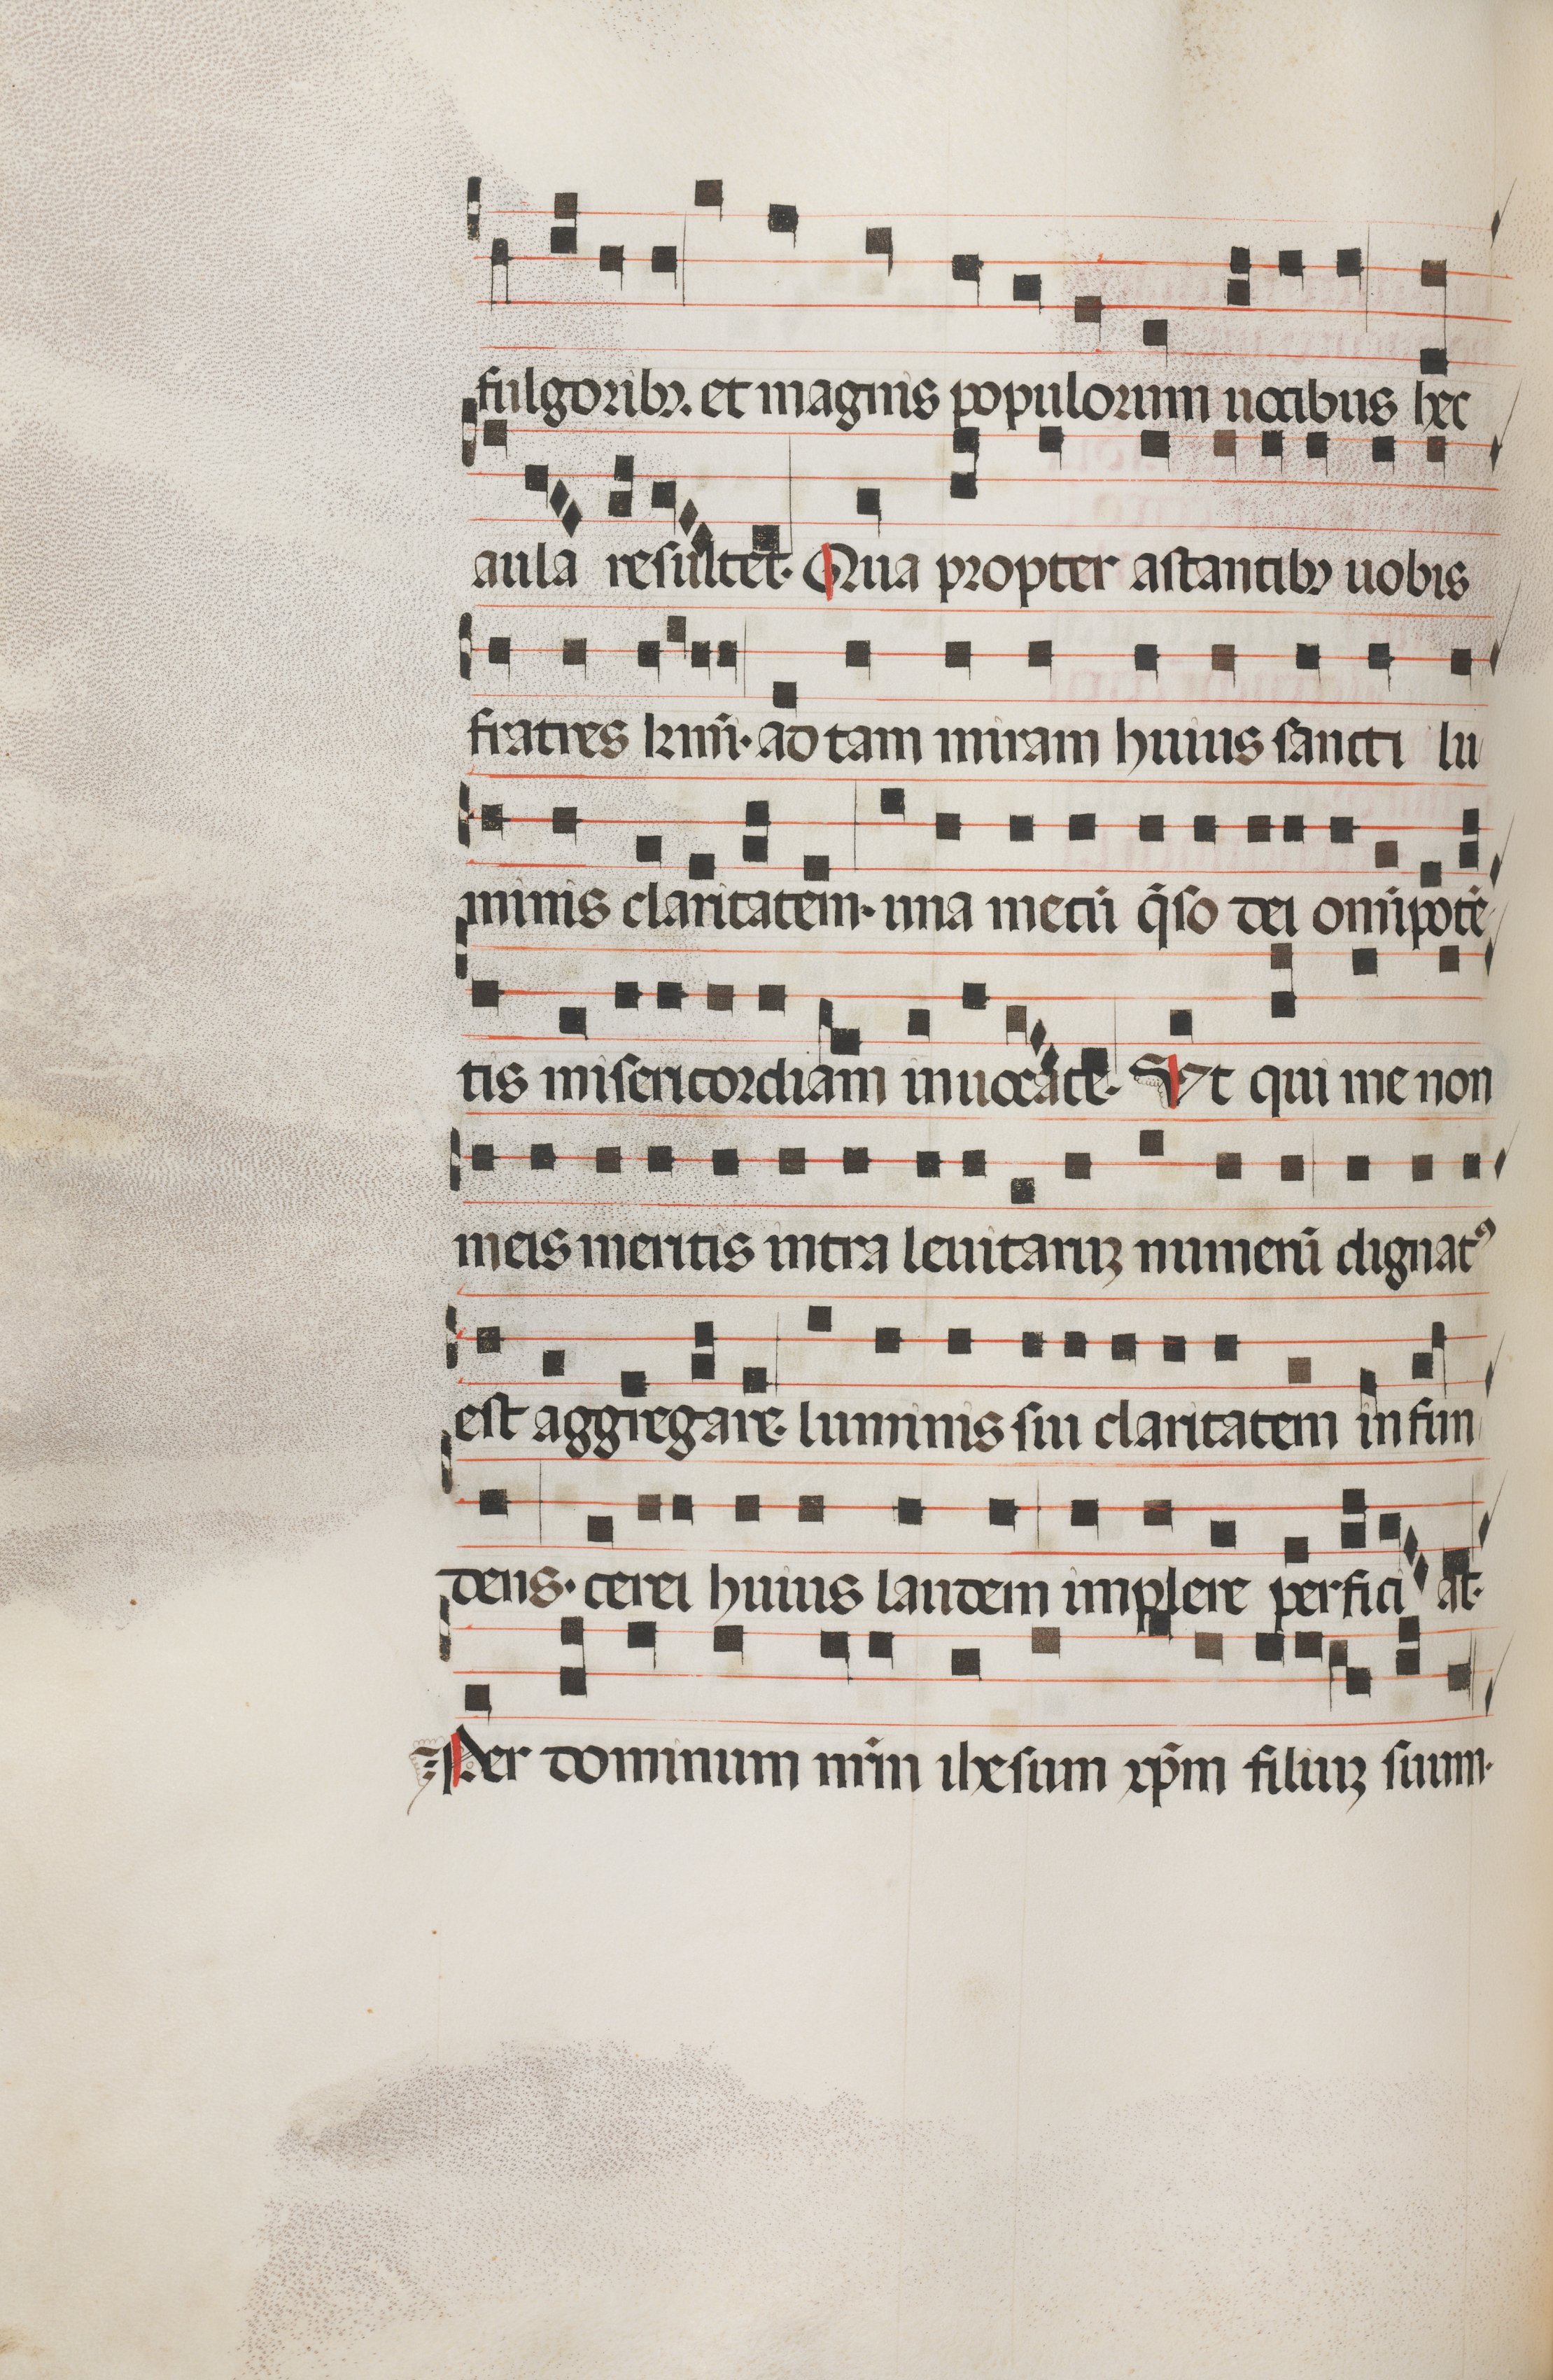 fulgoribꝫ. et magnis populorum uocibus hec
aula resultet. Qua propter astantibꝫ uobis
fratres krm̄i. ad tam miram huius sancti lu
minis claritatem. una mecū q̄so dei omīpotē
tis misericordiam inuocate. Vt qui me non
meis meritis intra leuitaruꝫ numerū dignatꝰ
est aggregare. luminis sui claritatem infun
dens. cerei huius laudem implere perficiat.
Per dominum nr̄m ihesum xp̄m filiuꝫ suum.